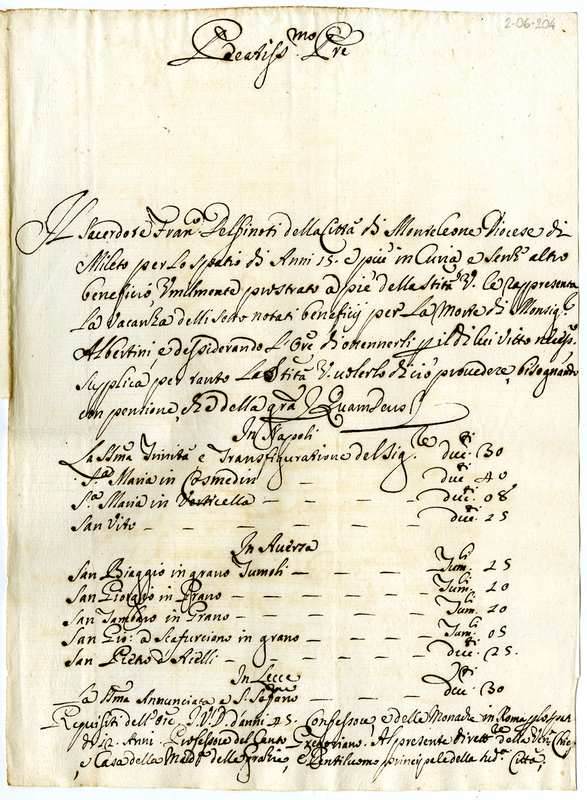 2-06-204
Beatiss.mo Pre
Il Sacerdote Fran.co Delfinoti della Città di Monteleone Diocese di
Mileto per lo spatio di Anni 15. e più in Curia e senz' altro
beneficio, Umilmente prostrato a piè della Stità V. le rappresenta
la vacanza delli sotto notati beneficij per la Morte di Monsig.r
Albertini, e desiderando l'Ore di ottennerli p il di lui vitto
supplica per tanto la Stità V. volerlo di ciò provedere, bisognando
con pentione, che della gra Quam Deus
In Napoli
La SSma Trinità e Transfiguratione del Sig.re duc.ti 30
S.a Maria in Cosmedin — — — duc.ti 40
S.a Maria in Verticella — — — duc.ti 08
San Vito — — — — — duc.ti 25
In Aversa
San Biaggio in grano Tumoli — — — — Tum.li 25
San Giorgio in Grano — — — — Tum.li 20
San Tamaro in Grano — — — — Tum.li 20
San Gio: a Scafurciano in grano — — — Tum.li 05
San Pietro d'Aielli — — — — — duc.ti 25.
In Lecce
La SSma Annunciata e S. Stefano — — — duc.ti 30
Requisiti dell' Ore, J.V.D. d'anni 45. Confessore, e delle Monache in Roma
di 12. Anni. Professore del Canto Gregoriano. Al presente Dirett.re della Ven. Chiesa
e Casa della Mad.a della Grazie, e Gentiluomo principale della sud.a Città,